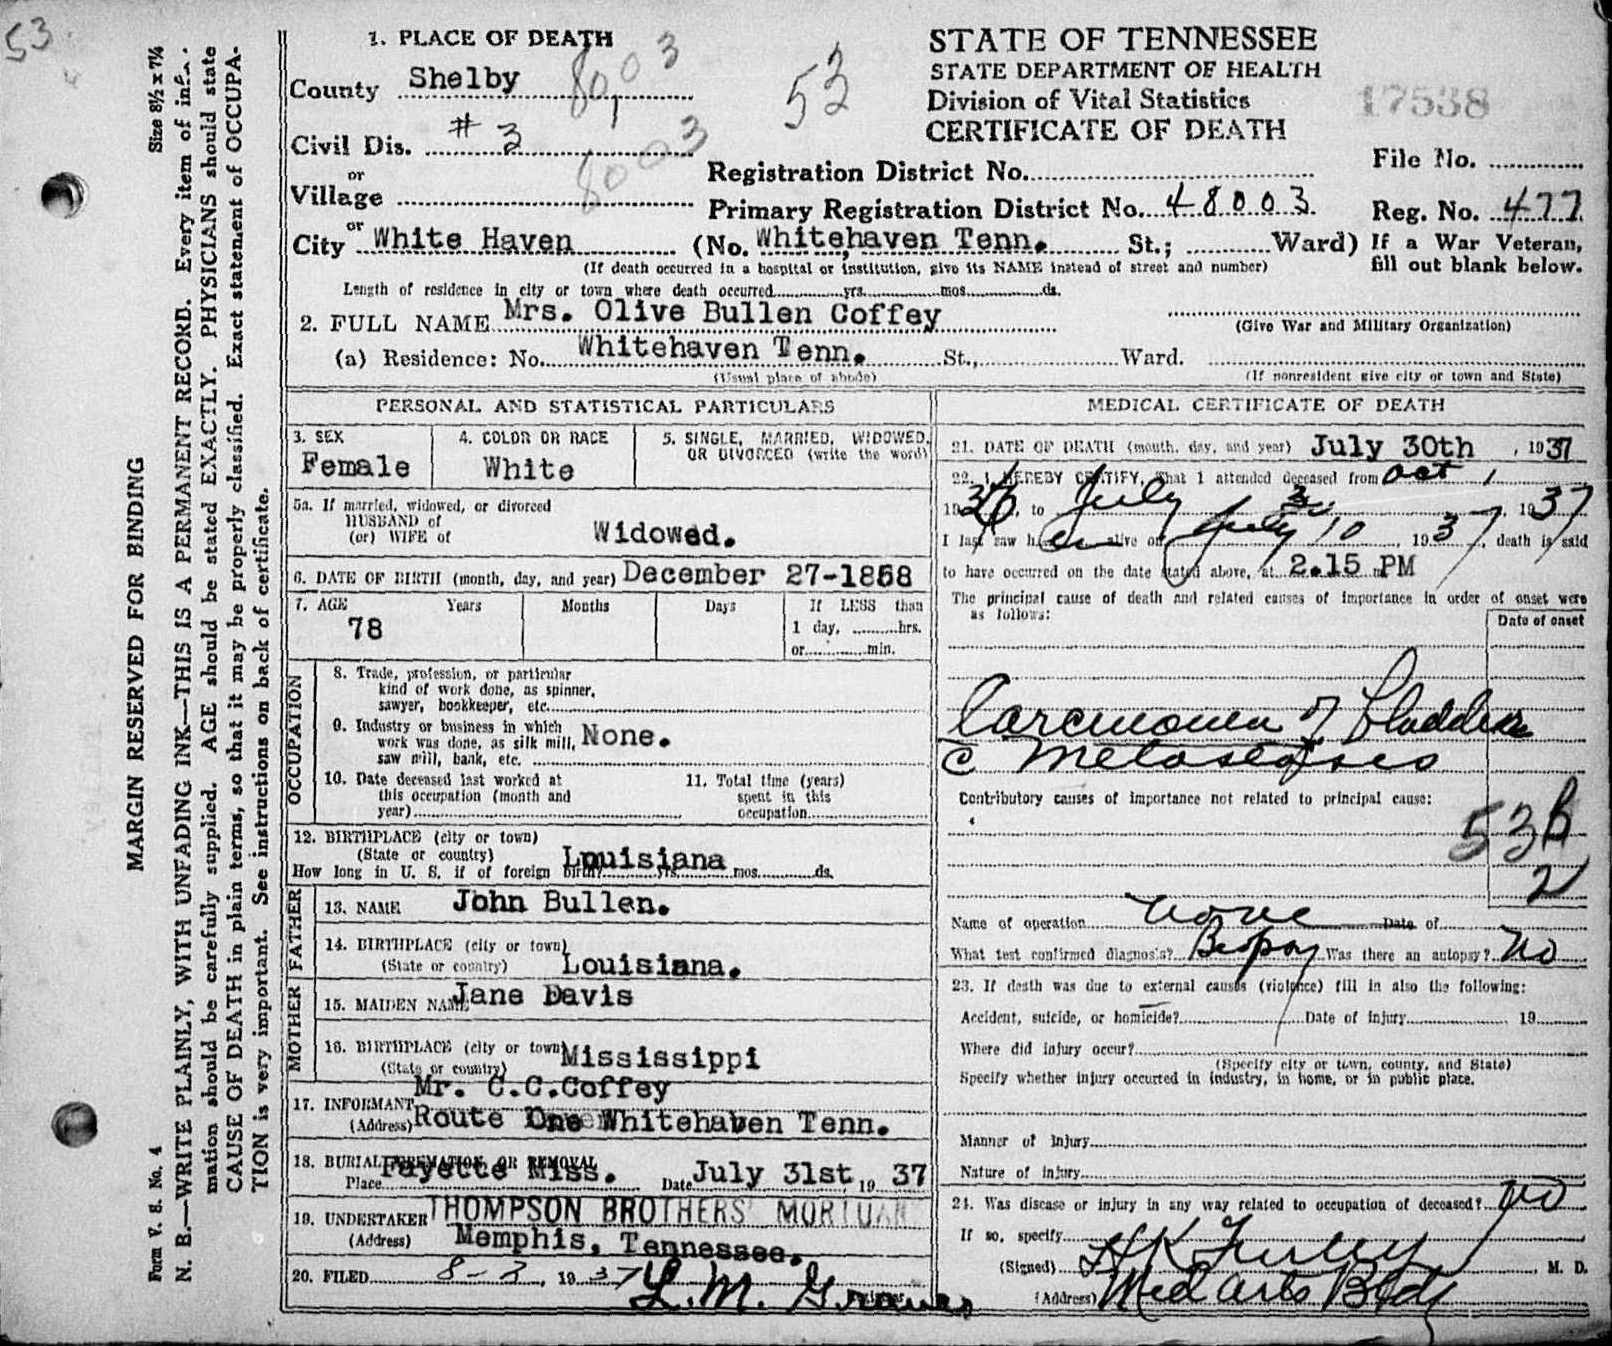 53
MARGIN RESERVED FOR BINDING
Size 8½ x 7¼
N. B.—WRITE PLAINLY, WITH UNFADING INK—THIS IS A PERMANENT RECORD. Every item of
mation should be carefully supplied. AGE should be stated EXACTLY. PHYSICIANS should state
CAUSE OF DEATH in plain terms, so that it may be properly classified. Exact statement of OCCUPA-
TION is very important. See instructions on back of certificate.
Form V. S. No. 4
1. PLACE OF DEATH
County Shelby
8003
Civil Dis. #3
8003
or
Village
or
City White Haven (No. Whitehaven Tenn. St.; Ward)
(If death occurred in a hospital or institution, give its NAME instead of street and number)
53
STATE OF TENNESSEE
STATE DEPARTMENT OF HEALTH
Division of Vital Statistics
CERTIFICATE OF DEATH
17538
Registration District No.
File No.
Primary Registration District No. 48003
Reg. No. 477
If a War Veteran,
fill out blank below.
Length of residence in city or town where death occurred yrs. mos. ds.
2. FULL NAME Mrs. Olive Bullen Coffey
(Give War and Military Organization)
(a) Residence: No. Whitehaven Tenn. St., Ward.
(Usual place of abode)
(If nonresident give city or town and State)
PERSONAL AND STATISTICAL PARTICULARS
3. SEX
Female
4. COLOR OR RACE
White
5. SINGLE, MARRIED, WIDOWED,
OR DIVORCED (write the word)
5a. If married, widowed, or divorced
HUSBAND of
(or) WIFE of
Widowed.
6. DATE OF BIRTH (month, day, and year) December 27-1858
7. AGE Years Months Days
78
If LESS than
1 day, hrs.
or min.
OCCUPATION
8. Trade, profession, or particular
kind of work done, as spinner,
sawyer, bookkeeper, etc.
9. Industry or business in which
work was done, as silk mill,
saw mill, bank, etc.
None.
10. Date deceased last worked at
this occupation (month and
year)
11. Total time (years)
spent in this
occupation
12. BIRTHPLACE (city or town)
(State or country) Louisiana
How long in U. S. if of foreign birth? yrs. mos. ds.
FATHER
13. NAME John Bullen.
14. BIRTHPLACE (city or town)
(State or country) Louisiana.
MOTHER
15. MAIDEN NAME Jane Davis
16. BIRTHPLACE (city or town)
(State or country) Mississippi
17. INFORMANT Mr. C.C.Coffey
(Address) Route One Whitehaven Tenn.
18. BURIAL, CREMATION OR REMOVAL
Place Fayette Miss. Date July 31st, 19 37
19. UNDERTAKER THOMPSON BROTHERS' MORTUAR
(Address) Memphis, Tennessee.
20. FILED 8-3, 19 37 L. M. Graves
Registrar
MEDICAL CERTIFICATE OF DEATH
21. DATE OF DEATH (month, day, and year) July 30th, 1937
22. I HEREBY CERTIFY, That I attended deceased from Oct 1,
1936, to July 30, 1937
I last saw her alive on July 10, 1937, death is said
to have occurred on the date stated above, at 2.15 PM
The principal cause of death and related causes of importance in order of onset were
as follows:
Date of onset
Carcinoma of Bladder
c metastases
Contributory causes of importance not related to principal cause:
53B
2
Name of operation none Date of
What test confirmed diagnosis? Biopsy Was there an autopsy? No
23. If death was due to external causes (violence) fill in also the following:
Accident, suicide, or homicide? Date of injury 19
Where did injury occur?
(Specify city or town, county, and State)
Specify whether injury occurred in industry, in home, or in public place.
Manner of injury
Nature of injury
24. Was disease or injury in any way related to occupation of deceased? No
If so, specify
(Signed) M. D.
(Address) Med Arts Bldg